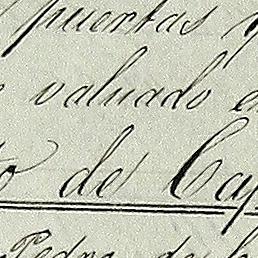 puertas y
valuado e
o de Cap
Pedro de l